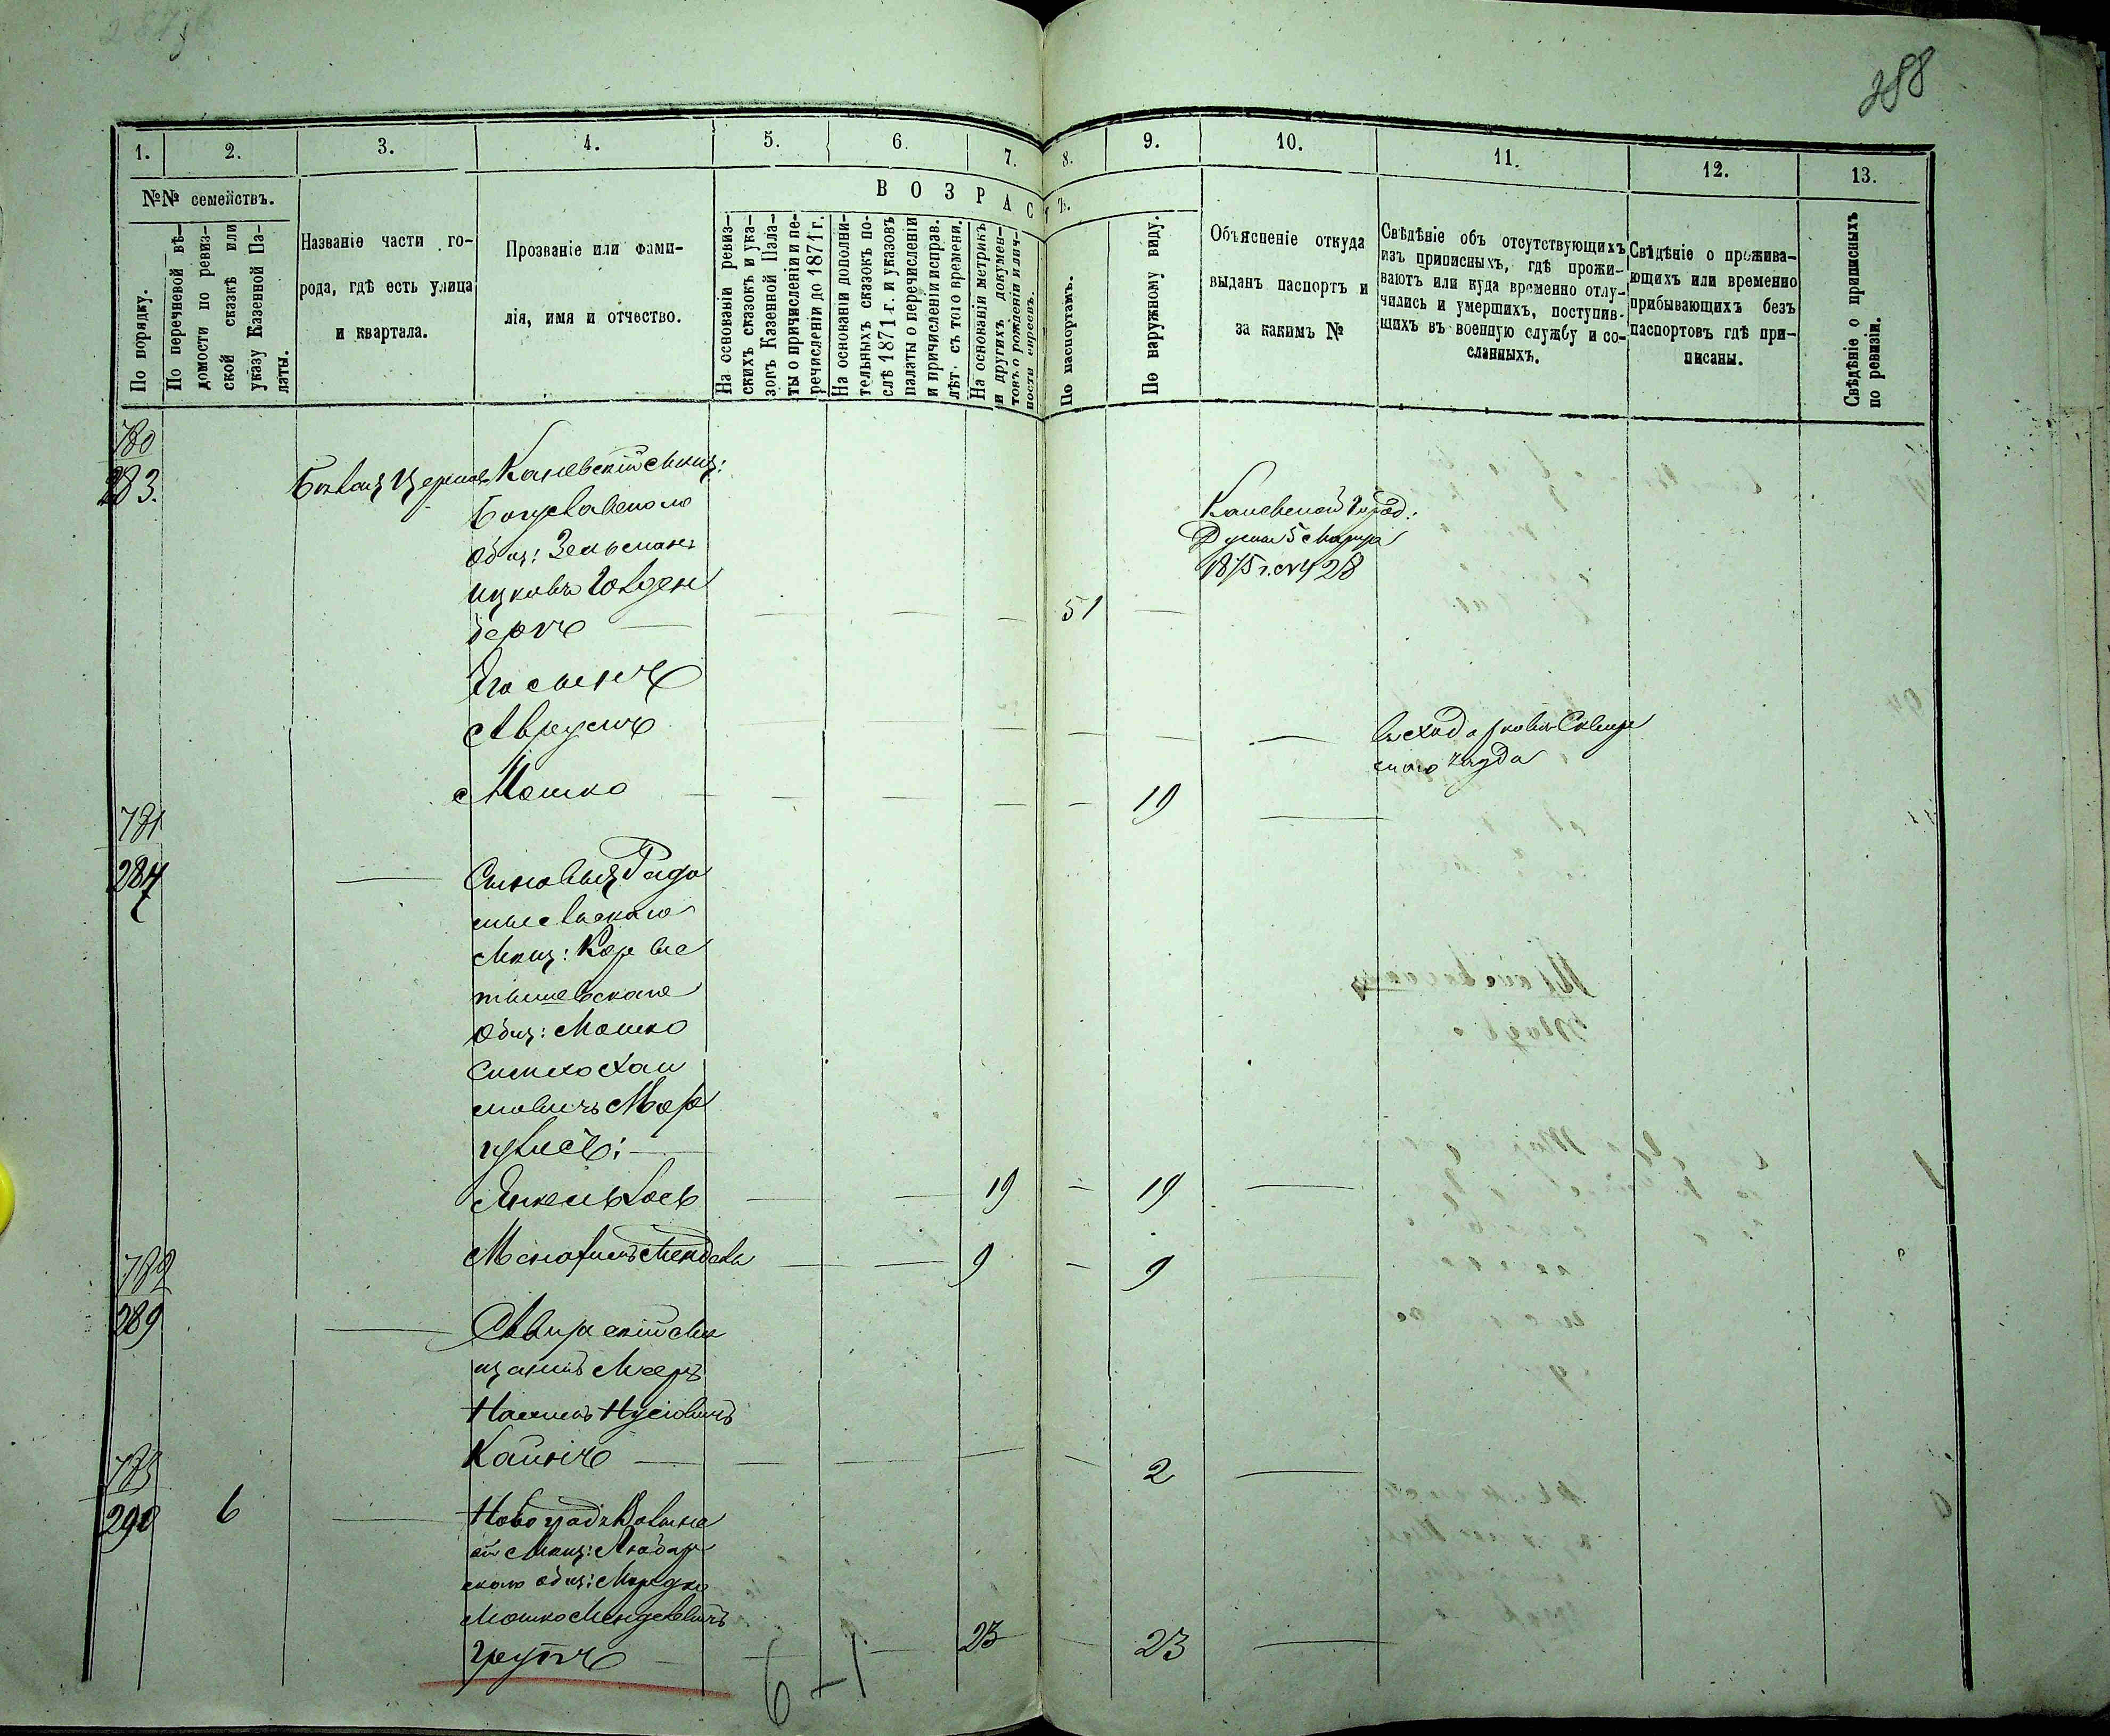 288
1.
2.
3.
4.
5.
6.
7.
8.
9.
10.
11.
12.
13.
№№ семействъ.
По порядку.
По перечневой вѣ-
домости по ревиз-
ской сказкѣ или
указу Казенной Па-
латы.
Названіе части го-
рода, гдѣ есть улица
и квартала.
Прозваніе или фами-
лія, имя и отчество.
ВОЗРАСТЪ.
На основаніи ревиз-
скихъ сказокъ и ука-
зовъ Казенной Пала-
ты о причисленіи и пе-
речисленіи до 1871 г.
На основаніи дополни-
тельныхъ сказокъ по-
слѣ 1871 г. и указовъ
палаты о перечисленіи
и причисленіи исправ.
лѣт. съ того времени.
На основаніи метрикъ
и другихъ докумен-
товъ о рожденіи и лич-
ности евреевъ.
По паспортамъ.
По наружному виду.
Объясненіе откуда
выданъ паспортъ и
за какимъ №
Свѣдѣніе объ отсутствующихъ
изъ приписныхъ, гдѣ прожи-
ваютъ или куда временно отлу-
чились и умершихъ, поступив-
шихъ въ военную службу и со-
сланныхъ.
Свѣдѣніе о прожива-
ющихъ или временно
прибывающихъ безъ
паспортовъ гдѣ при-
писаны.
Свѣдѣніе о приписныхъ
по ревизіи.
780
283.
Бѣлая Церковь
Каневскій Мѣщ:
Богуславскаго
Общ: Зельманъ
Ицковъ Голден
бергъ
51
Каневской Город:
Думы 5 Марта
1875 г. № 428
Его сынъ
Аврумъ
Въ Ходорковѣ Сквир
скаго уѣзда
Мошко
19
781
284
Сыновья Радо
мысльскаго
Мѣщ: Коры
тышевскаго
Общ: Мошко
Симхо Хаи
мовичъ Мар
гулисъ:
Янкель Лось
19
19
Менахимъ Мендель
9
9
782
289
Сквирскій Мѣ
щанинъ Мееръ
Нахимъ Нусіовичъ
2
783
290
6
Новоградъ Волынс
кій Мѣщ: Любар
скаго общ: Мордко
Мошко Менделевичъ
23
23
6-1